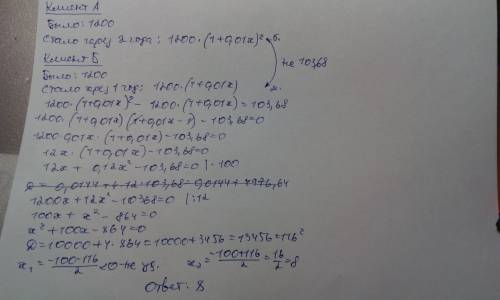 Клиент А
Было: 1200
Стало через 2 года: 1200·(1+0,01x)² б.
Клиент Б
на 103,68
Было: 1200
Стало через 1 год: 1200·(1+0,01x) м.
1200·(1+0,01x)² - 1200·(1+0,01x) = 103,68
1200·(1+0,01x)(1+0,01x-1) - 103,68=0
1200·0,01x·(1+0,01x)-103,68=0
12x·(1+0,01x)-103,68=0
12x + 0,12x² - 103,68=0 |·100
D = 0,0144+4·12·103,68=0,0144+4976,64
1200x+12x²-10368=0 |:12
100x + x² - 864=0
x²+100x-864=0
D=10000+4·864=10000+3456=13456=116²
x₁ = -100-116/2 <0-не уд. x₂ = -100+116/2 = 16/2 = 8
Ответ: 8